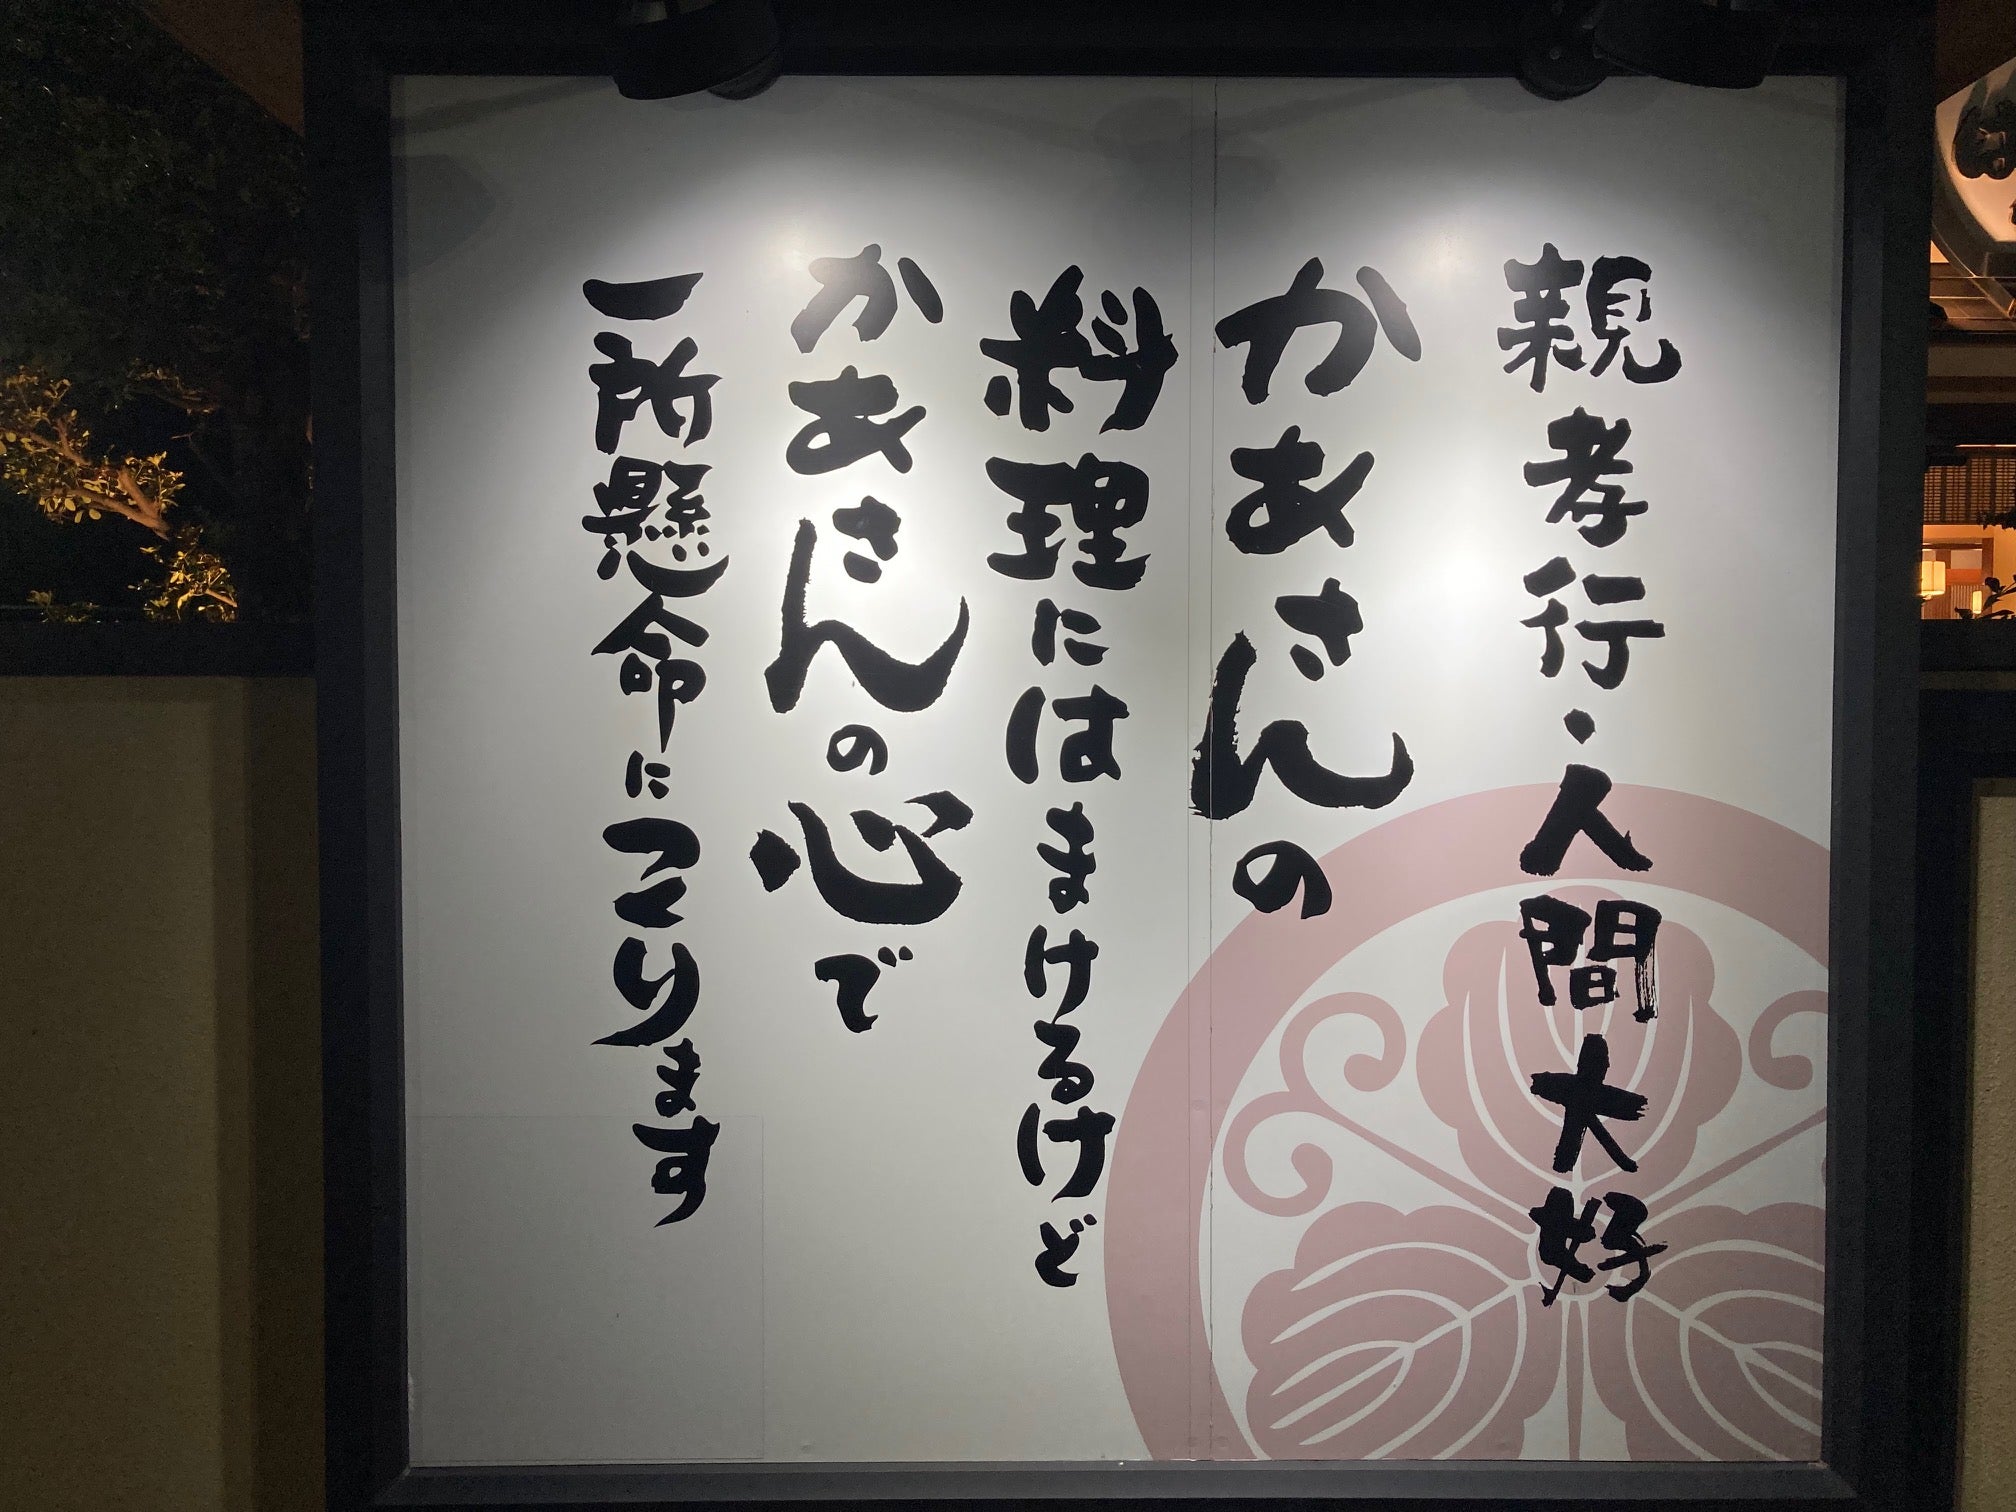 親孝行・人間大好
かあさんの
料理にはまけるけど
かあさんの心で
一所懸命につくります